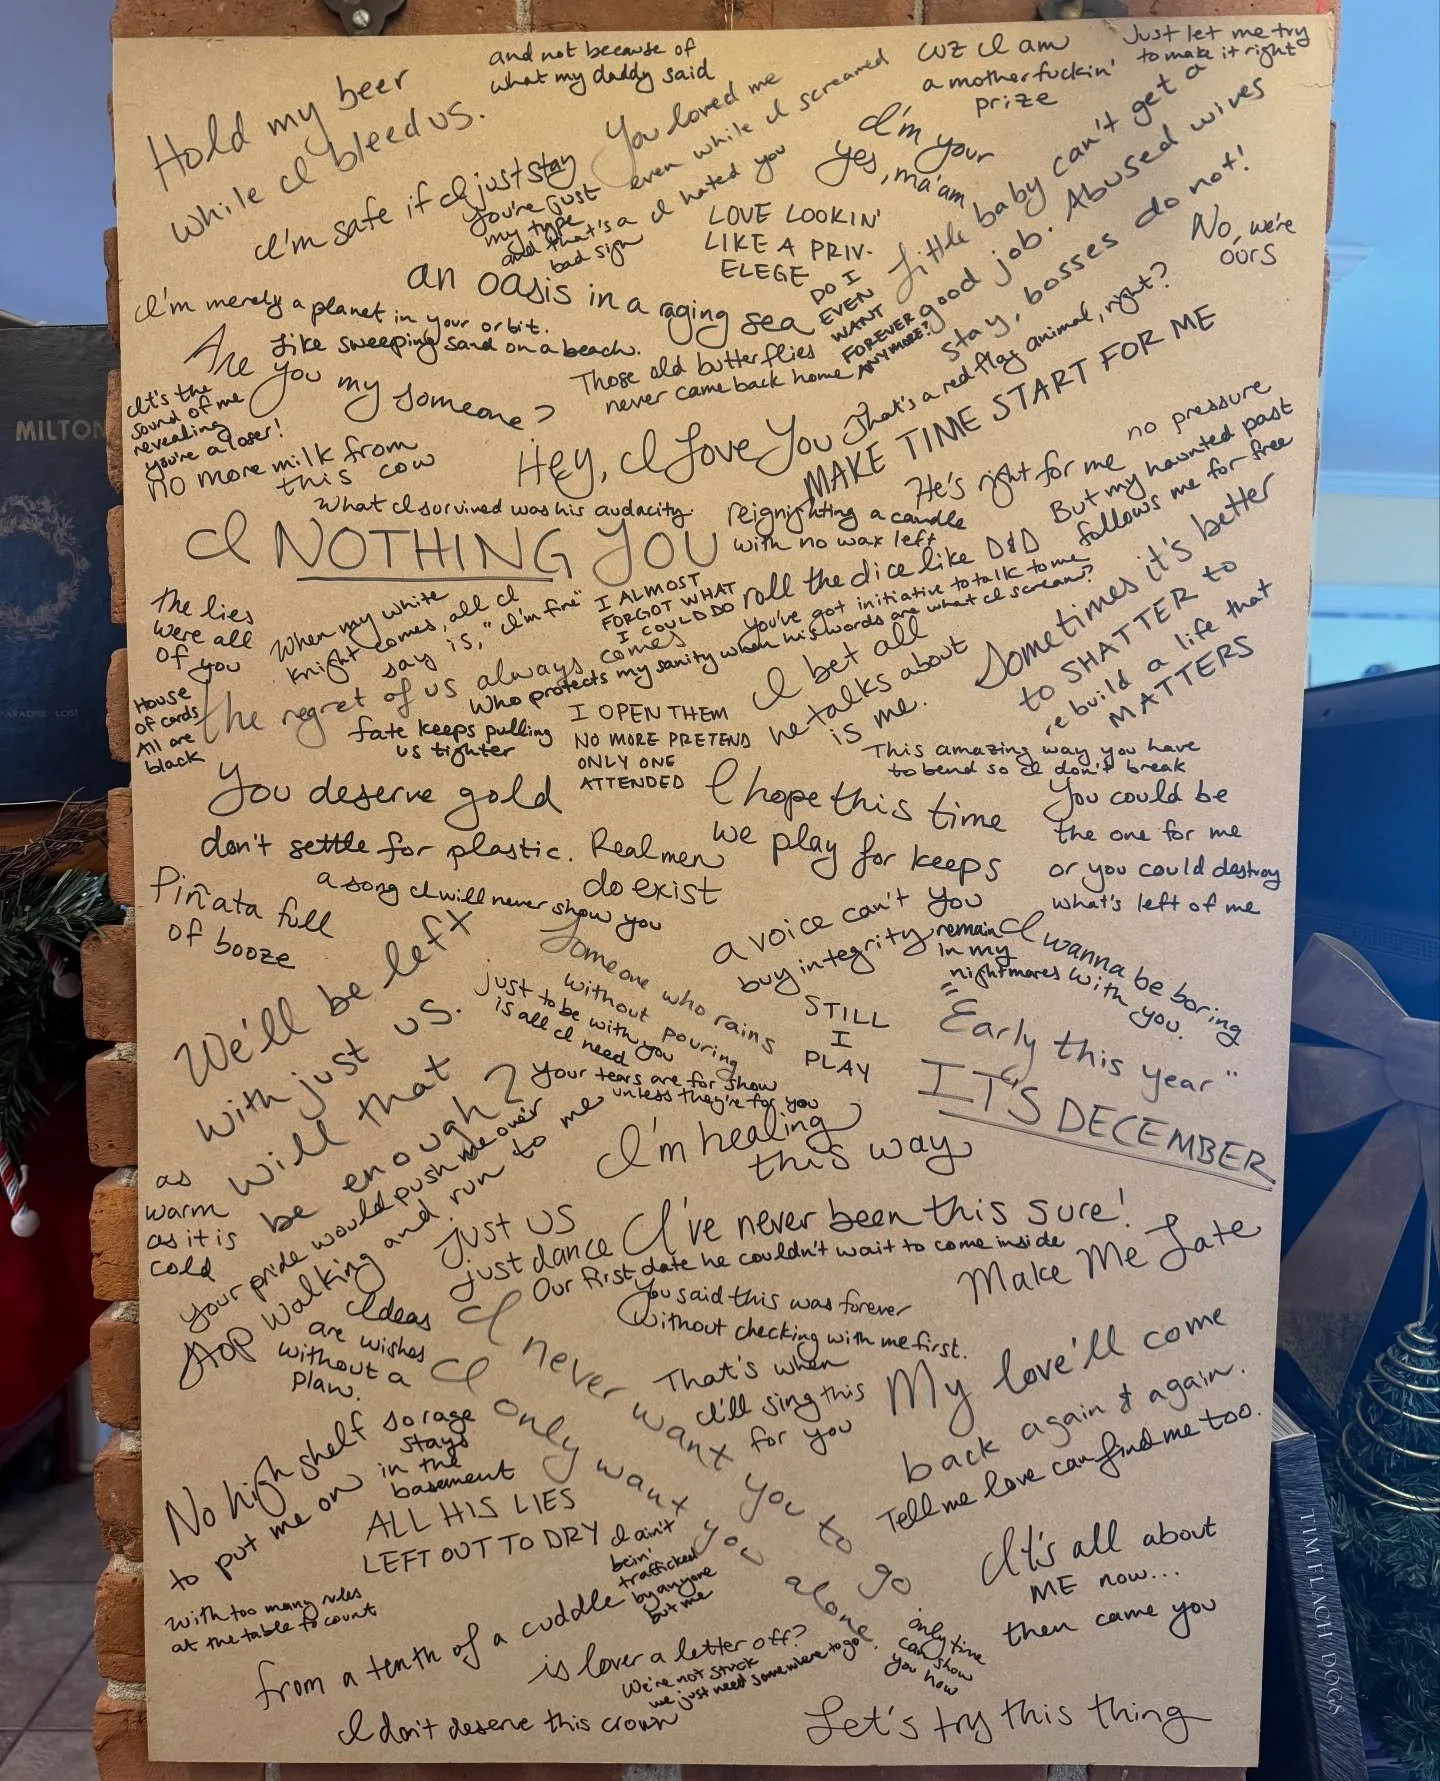 Hold my beer
while I bleed us.
and not because of
what my daddy said
You loved me
even while I screamed
I hated you
cuz I am
a motherfuckin'
prize
Just let me try
to make it right
I'm your
yes, ma'am
Little baby can't get a
good job. Abused wives
stay, bosses do not!
No, we're
ours
I'm safe if I just stay
You're just
my type
and that's a
bad sign
LOVE LOOKIN'
LIKE A PRIV-
ELEGE
an oasis in a raging sea
DO I
EVEN
WANT
FOREVER
ANYMORE?
I'm merely a planet in your orbit.
Like sweeping sand on a beach.
Are
you my someone?
Those old butterflies
never came back home
That's a red flag animal, right?
MAKE TIME START FOR ME
It's the
sound of me
revealing
you're a loser!
no more milk from
this cow
Hey, I Love You
no pressure
He's right for me
But my haunted past
follows me for free
What I survived was his audacity.
I NOTHING YOU
reignighting a candle
with no wax left
roll the dice like D&D
You've got initiative to talk to me
The lies
were all
of you
When my white
knight comes, all I
say is, "I'm fine"
I ALMOST
FORGOT WHAT
I COULD DO
Who protects my sanity when his words are what I scream?
the regret of us always comes
Sometimes it's better
to SHATTER to
rebuild a life that
MATTERS
House
of cards
All are
black
fate keeps pulling
us tighter
I OPEN THEM
NO MORE PRETEND
ONLY ONE
ATTENDED
I bet all
he talks about
is me.
This amazing way you have
to bend so I don't break
You deserve gold
don't settle for plastic. Real men
do exist
I hope this time
we play for keeps
You could be
the one for me
or you could destroy
what's left of me
Piñata full
of booze
a song I will never show you
a voice can't you
buy integrity
remain
in my
nightmares
I wanna be boring
with you.
We'll be left
with just us.
will that
be enough?
Someone who rains
without pouring
just to be with you
is all I need
STILL
I
PLAY
"Early this year"
IT'S DECEMBER
your tears are for show
unless they're for you
I'm healing
this way
as
warm
as it is
cold
your pride would push me over
Stop walking and run to me
just us
just dance
I've never been this sure!
Our first date he couldn't wait to come inside
Make Me Late
Ideas
are wishes
without a
plan.
You said this was forever
without checking with me first.
I never want you to go
I only want you alone.
That's when
I'll sing this
for you
My love'll come
back again & again.
Tell me love can find me too.
No high shelf
to put me on
so rage
stays
in the
basement
ALL HIS LIES
LEFT OUT TO DRY
I ain't
bein'
trafficked
by anyone
but me
It's all about
ME now...
then came you
with too many rules
at the table to count
from a tenth of a cuddle
is lover a letter off?
We're not stuck
we just need somewhere to go
only time
can show
you how
I don't deserve this crown
Let's try this thing
MILTON
PARADISE LOST
TIM FLACH DOGS